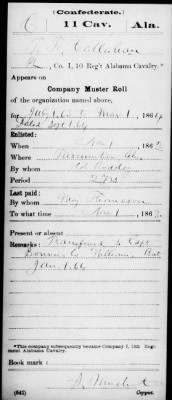 (Confederate.)
C 11 Cav. Ala.
Callahan
Co. I, 10 Reg't Alabama Cavalry.*
Appears on
Company Muster Roll
of the organization named above,
for July 1.63 to Mar 1, 1864
Dated Sept 1.64
Enlisted:
When Nov 1, 1862
Where Tuscumbia Ala
By whom Col Roddy
Period 2 yrs
Last paid:
By whom May Thomason
To what time Nov 1, 1862
Present or absent
Remarks: Transferred to Capt
Co. Bat
Jan 1.64
*This company subsequently became Company I, 11th Regiment Alabama Cavalry.
Book mark:
(642) Copyist.